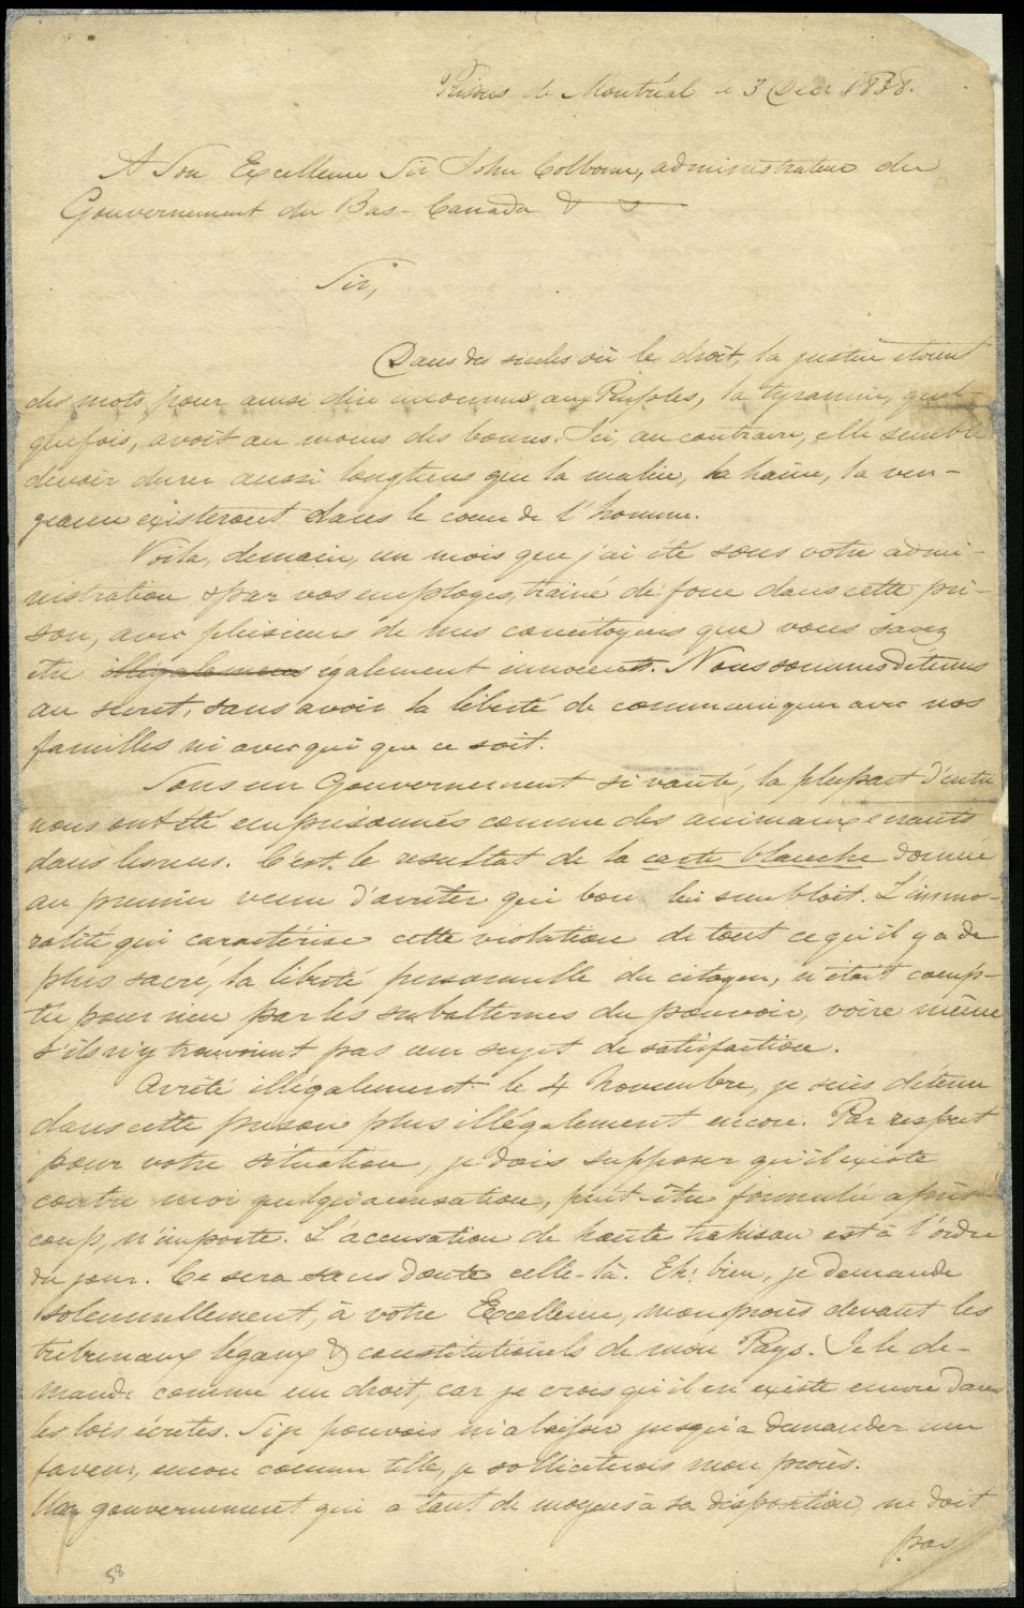 Prison de Montréal le 3 Decr 1838.
A Son Excellence Sir John Colborne, administrateur du
Gouvernement du Bas-Canada &
Sir,
Dans des siecles où le droit, la justice etoient
des mots, pour ainsi dire inconnus aux Peuples, la tyrannie, quel-
quefois, avoit au moins des bornes. Ici, au contraire, elle semble
devoir durer aussi longtems que la malice, la haine, la ven-
geance existeront dans le coeur de l'homme.
Voila, demain, un mois que j'ai été sous votre admi-
nistration & par vos employes, trainé de force dans cette pri-
son, avec plusieurs de mes concitoyens que vous savez
etre illegalement également innocents. Nous sommes detenus
au secret, sans avoir la liberté de communiquer avec nos
familles ni avec qui que ce soit.
Sous un Gouvernement si vanté, la plupart d'entre
nous ont été emprisonnés comme des animaux errants
dans les rues. C'est le resultat de la carte blanche donnée
au premier venu d'arrêter qui bon lui sembloit. L'immo-
ralité qui caractérise cette violation de tout ce qu'il y a de
plus sacré, la liberté personnelle du citoyen, n'étoit comp-
tée pour rien par les subalternes du pouvoir, voire même
s'ils n'y trouvoient pas un sujet de satisfaction.
Arrêté illégalement le 4 novembre, je suis detenu
dans cette prison plus illégalement encore. Par respect
pour votre situation, je dois supposer qu'il existe
contre moi quelqu'accusation, peut-être formulée après
coup, n'importe. L'accusation de haute trahison est à l'ordre
du jour. Ce sera sans doute celle-là. Eh! bien, je demande
solemnellement, à votre Excellence, mon procès devant les
tribunaux légaux & constitutionels de mon Pays. Je le de-
mande comme un droit, car je crois qu'il en existe encore dans
les lois écrites. Si je pouvois m'abaisser jusqu'a demander une
faveur, encore comme telle, je solliciterois mon procès.
Un gouvernement qui a tant de moyens à sa disposition, ne doit
pas
58